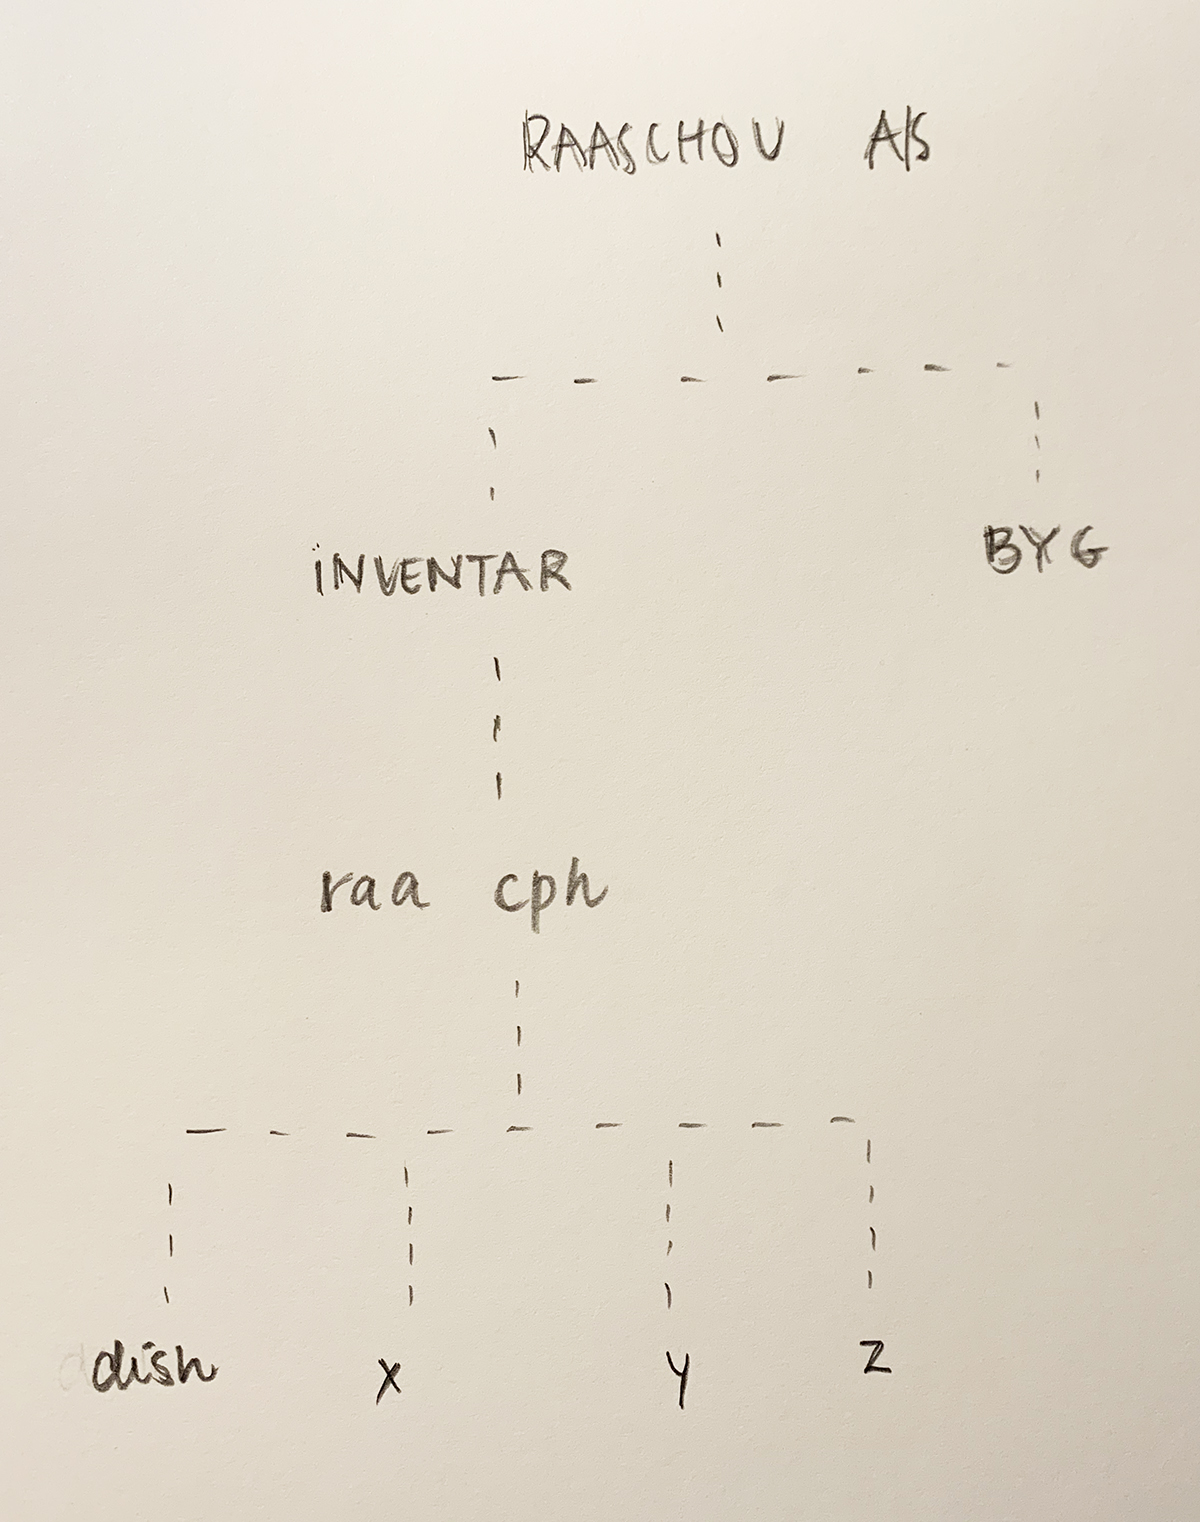 RAASCHOU A/S
INVENTAR BYG
raa cph
dish x y z